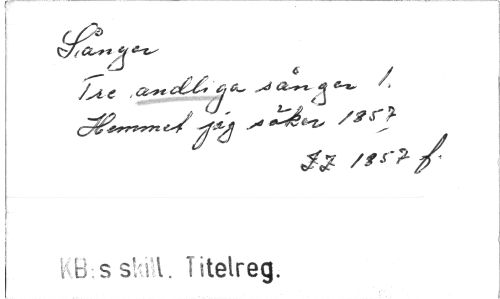 Sånger
Tre andliga sånger 1.
Hemmet jag söker 1857
1857 f.
KB:s skill. Titelreg.